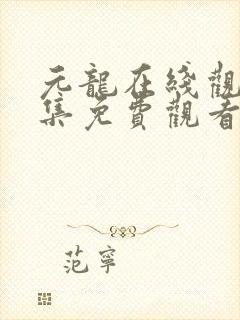 元龍在綫觀
集免費觀看
范寧